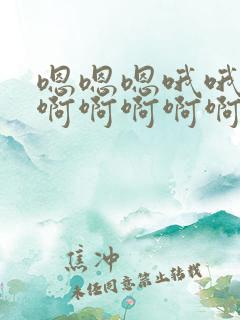 嗯嗯嗯哦哦
啊啊啊啊啊
焦冲
未经同意禁止转载